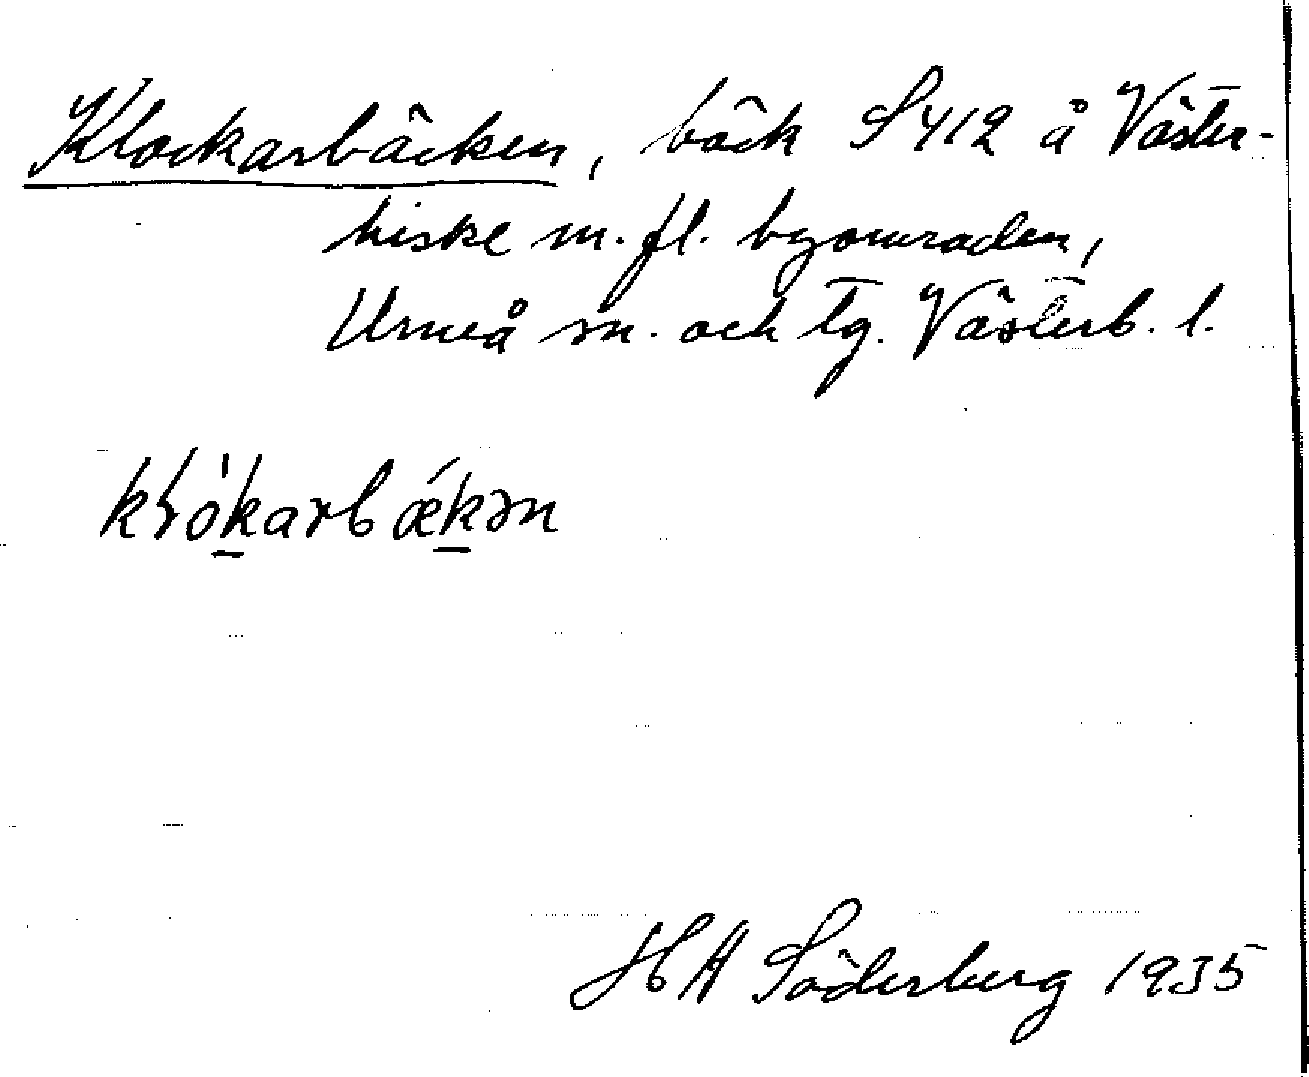 Klockarbäcken, bäck S412 å Väster-
hiske m. fl. byområden,
Umeå sn. och tg. Västerb. l.
HA Söderberg 1935